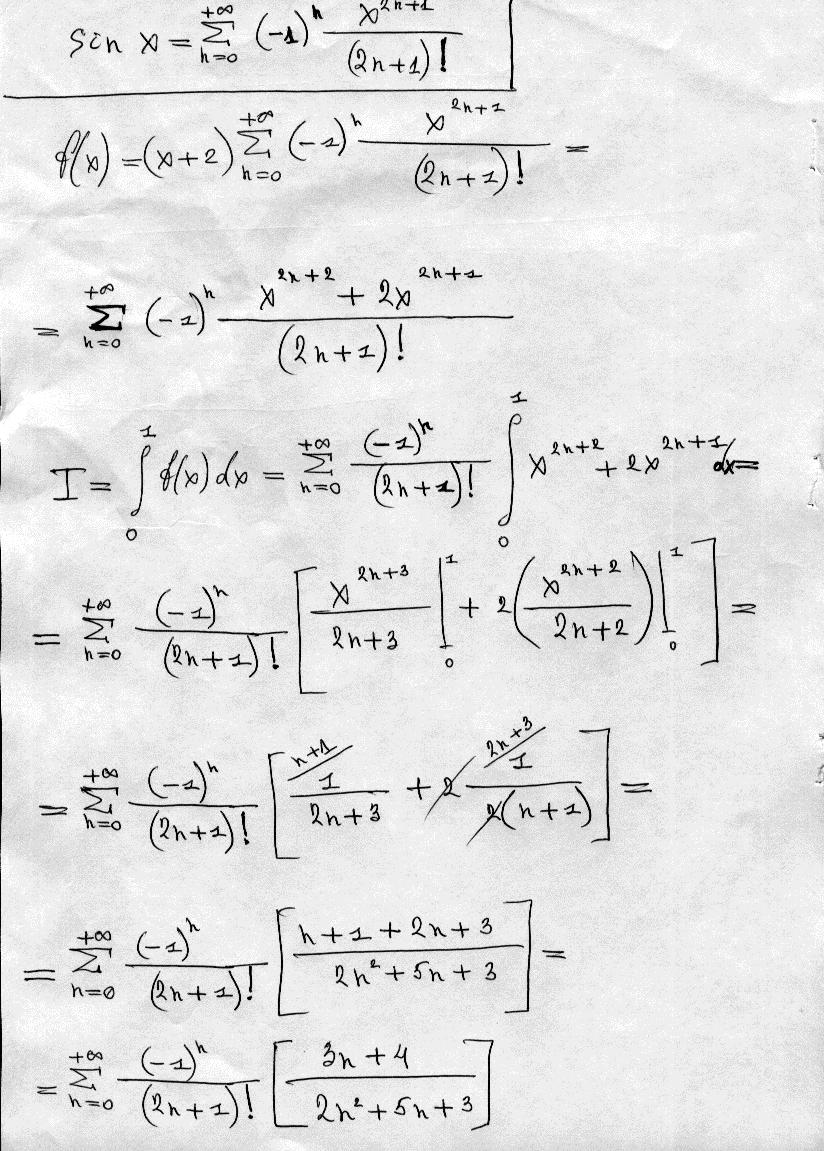 sin x = \sum_{n=0}^{+∞} (-1)^n \frac{x^{2n+1}}{(2n+1)!}
f(x) = (x+2) \sum_{n=0}^{+∞} (-1)^n \frac{x^{2n+1}}{(2n+1)!} =
= \sum_{n=0}^{+∞} (-1)^n \frac{x^{2n+2} + 2x^{2n+1}}{(2n+1)!}
I = \int_0^1 f(x) dx = \sum_{n=0}^{+∞} \frac{(-1)^n}{(2n+1)!} \int_0^1 x^{2n+2} + 2x^{2n+1} dx =
= \sum_{n=0}^{+∞} \frac{(-1)^n}{(2n+1)!} [ \frac{x^{2n+3}}{2n+3} |_0^1 + 2 ( \frac{x^{2n+2}}{2n+2} ) |_0^1 ] =
= \sum_{n=0}^{+∞} \frac{(-1)^n}{(2n+1)!} [ ^{n+1/} \frac{1}{2n+3} + \cancel{2} ^{2n+3/} \frac{1}{\cancel{2}(n+1)} ] =
= \sum_{n=0}^{+∞} \frac{(-1)^n}{(2n+1)!} [ \frac{n+1+2n+3}{2n^2+5n+3} ] =
= \sum_{n=0}^{+∞} \frac{(-1)^n}{(2n+1)!} [ \frac{3n+4}{2n^2+5n+3} ]